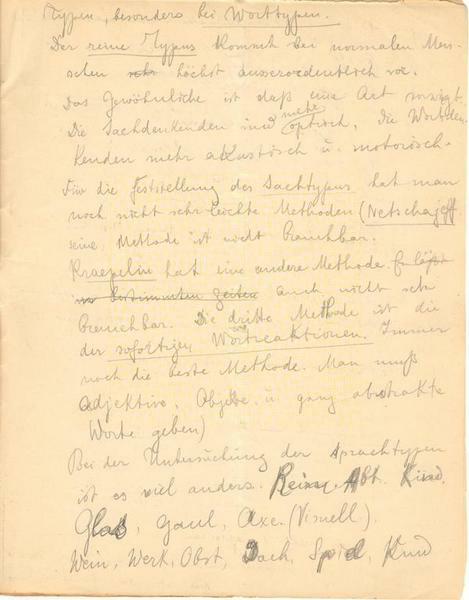 Typen, besonders bei Worttypen.
Der reine Typus kommt bei normalen Men-
schen sehr höchst ausserordentlich vor.
Das Gewöhnliche ist daß eine Art vorwiegt.
Die Sachdenkenden sind mehr optisch, die Wortden-
kenden mehr akustisch u. motorisch.
Für die Feststellung des Sachtypus hat man
noch nicht sehr leichte Methoden (Netschajeff
seine Methode ist nicht brauchbar.
Kraepelin hat eine andere Methode. Er läßt
in bestimmten Zeiten auch nicht sehr
brauchbar. Die dritte Methode ist die
der sofortigen Wortreaktionen. Immer
noch die beste Methode. Man muß
Adjektive, Objekte u. ganz abstrakte
Worte geben)
Bei der Untersuchung der Sprachtypen
ist es viel anders. Reim, Abt. Kind,
Glas, Gaul, Axe. (Visuell).
Wein, Werk, Obst, Dach, Spiel,